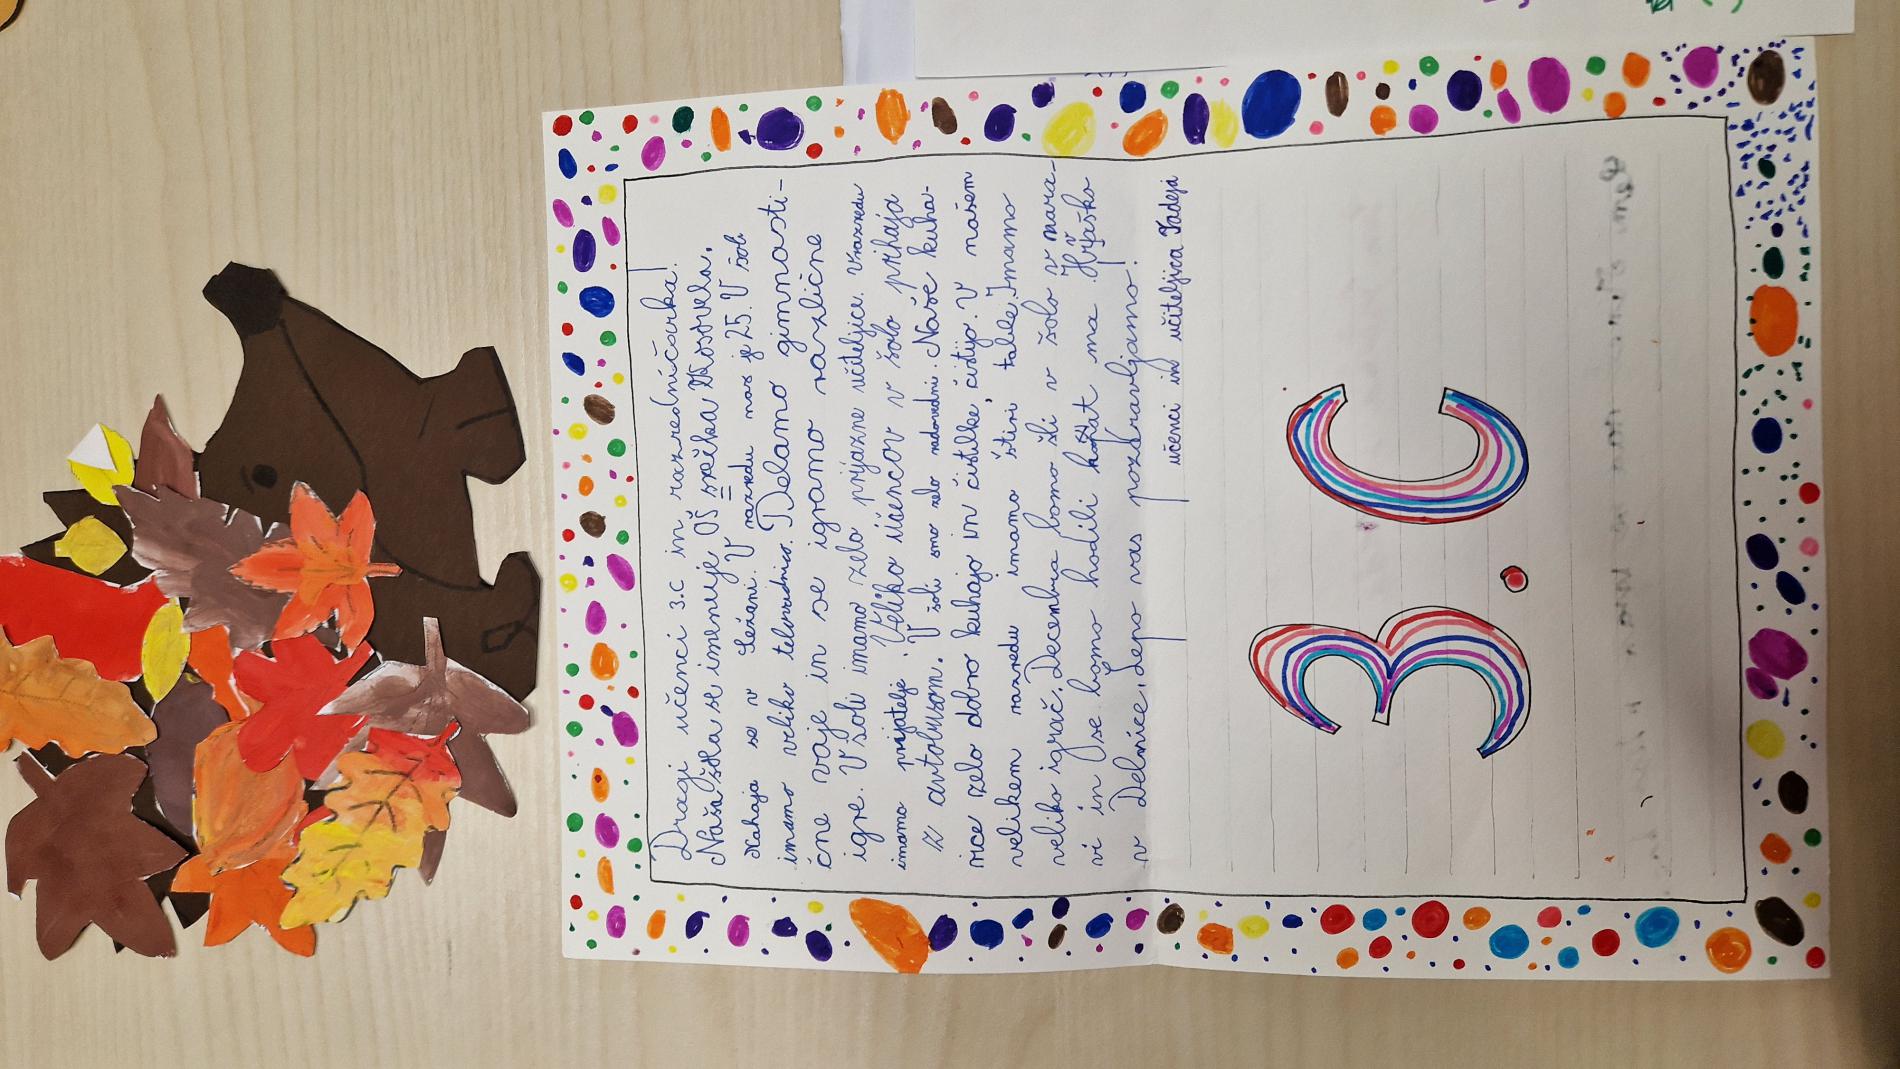 Dragi učenci 3.c in razredničarka!
Naša šola se imenuje OŠ Srečka Kosovela.
Nahaja se v Sežani. V razredu nas je 25. V šoli
imamo veliko telovadnico. Delamo gimnasti-
čne vaje in se igramo različne
igre. V šoli imamo zelo prijazne učiteljice. V razredu
imamo prijatelje. Veliko učencov v šolo prihaja
z avtobusom. V šoli smo zelo radovedni. Naše kuha-
rice zelo dobro kuhajo in čistilke čistijo. V našem
velikem razredu imamo štiri table. Imamo
veliko igrač. Decembra bomo šli v šolo v nara-
vi in se bomo hodili kožat na Hrvaško
v Delnice. Lepo vas pozdravljamo!
učenci in učiteljica Tadeja
3.C